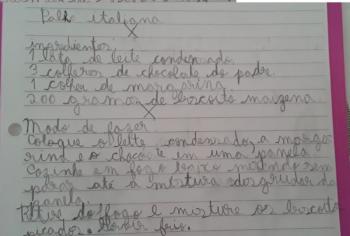 Palh italiana
ingredientes
1 lata de leite condensado
3 colheres de chocolate do padre
1 colher de margarina
200 gramas de biscoito maizena
Modo de fazer
Coloque o leite condensado, a marga
rina e o chocolate em uma panela.
Cozinhe em fogo baixo mexendo sem
parar até a mistura desgrudar da
panela.
Retire do fogo e misture os biscoito
picados. Servir frio.